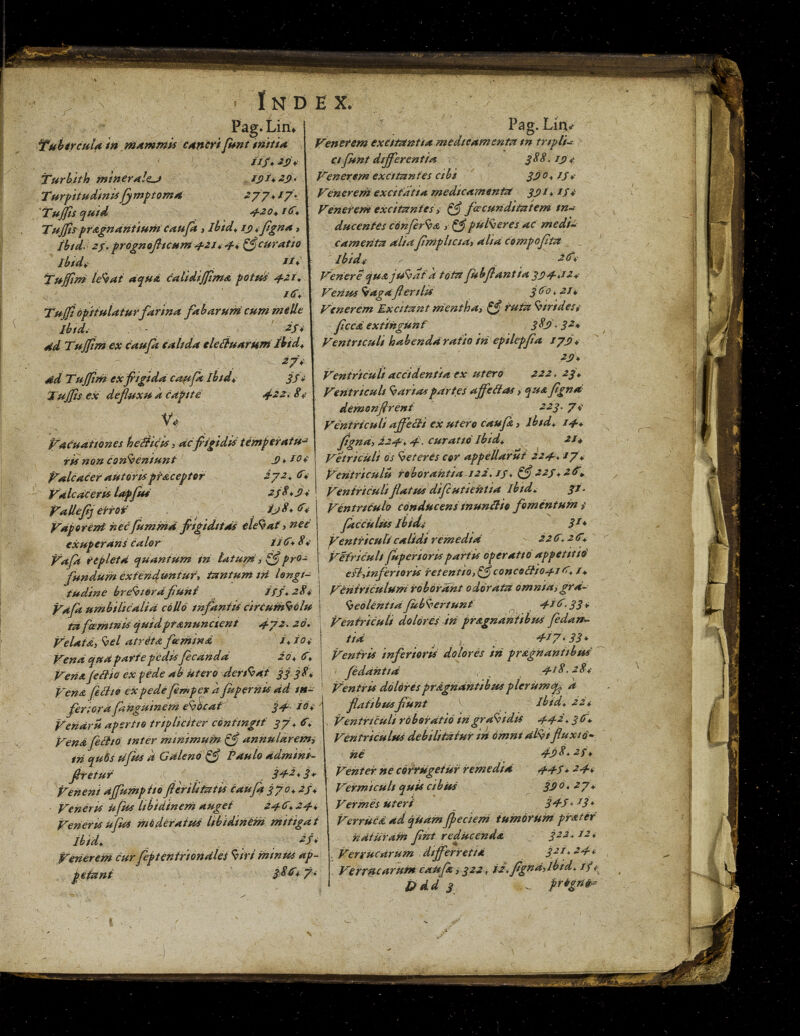 INDEX.
Pag. Lin.
Tubercula in mammis cancri sunt initia
115. 29.
Turbith minerale
191. 29.
Turpitudinis symptoma 277. 17.
Tussis quid 420. 16.
Tussis prægnantium causa, Ibid. 19. signa,
Ibid. 25. prognosticum 421. 4. & curatio
Ibid. 11.
Tussim levat aqua calidissima potus 421.
16.
Tussi opitulatur farina fabarum cum melle
Ibid. 25.
Ad Tussim ex causa calida electuarum Ibid.
27.
Ad Tussim ex frigida causa Ibid. 35.
Tussis ex defluxu a capite 422. 8.
V.
Vacuationes hecticis, ac frigidis temperatu-
ris non conveniunt 9. 10.
Valcacer autoris præceptor 272. 6.
Valcaceris lapsus 258. 9.
Vallesij error 158. 6.
Vaporem nec summa frigiditas elevat, nec
exuperans calor 116. 8.
Vasa repleta quantum in latum, & pro-
fundum extenduntur, tantum in longi-
tudine breviora fiunt 155. 28.
Vasa umbilicalia collo infantis circumvolu
ta fœminis quid prænuncient 472. 20.
Velata, vel atreta fœmina 1. 10.
Vena qua parte pedis secanda 20. 6.
Venæ sectio ex pede ab utero derivat 33 38.
Venæ sectio ex pede semper a supernis ad in-
feriora sanguinem evocat 34. 10.
Venarū apertio tripliciter contingit 37. 6.
Venæ sectio inter minimum & annularem,
in quibs usus a Galeno & Paulo admini-
stretur 342. 3.
Veneni assumptio sterilitatis causa 370. 25.
Veneris usus libidinem auget 246. 24.
Veneris usus moderatus libidinem mitigat
Ibid. 25.
Venerem cur septentrionales viri minus ap-
petant 386. 7.
Pag. Lin.
Venerem excitantia medicamenta in tripli-
ci sunt differentia 388. 19.
Venerem excitantes cibi 390. 15.
Venerem excitātia medicamenta 391. 15.
Venerem excitantes, & fœcunditatem in-
ducentes conserva, & pulveres ac medi-
camenta alia simplicia, alia composita
Ibid. 26.
Venerē qua juvāt à tota substantia 394. 12.
Venus vaga sterilis 360. 21.
Venerem Excitant mentha, & ruta virides,
sicca extingunt 389. 32.
Ventriculi habenda ratio in epilepsia 179.
29.
Ventriculi accidentia ex utero 222. 23.
Ventriculi varias partes affectas, qua signa
demonstrent 223. 7.
Ventriculi affecti ex utero causa, Ibid. 14.
signa, 224. 4. curatio Ibid. 21.
Vētriculi os veteres cor appellarūt 224. 17.
Ventriculū roborantia 122. 15. & 225. 26.
Ventriculi flatus discutientia Ibid. 31.
Ventriculo conducens inunctio fomentum,
sacculus Ibid. 31.
Ventriculi calidi remedia 226. 26.
Vētriculi superioris partis operatio appetitio
est, inferioris retentio, & concoctio 416. 1.
Ventriculum roborant odorata omnia, gra-
veolentia subvertunt 416. 33.
Ventriculi dolores in prægnantibus sedan-
tia 417. 33.
Ventris inferioris dolores in prægnantibus
sedantia 418. 28.
Ventris dolores prægnantibus plerumq; a
flatibus fiunt Ibid. 22.
Ventriculi roboratio in gravidis 442. 36.
Ventriculus debilitatur in omni alvi fluxio-
ne 498. 25.
Venter ne corrugetur remedia 445. 24.
Vermiculi quis cibus 390. 27.
Vermes uteri 345. 13.
Verruca ad quam speciem tumorum præter
naturam sint reducenda 322. 12.
Verrucarum differētia 321. 24.
Verrucarum causa, 322, 12. signa, Ibid. 15.
Ddd 3 progno-